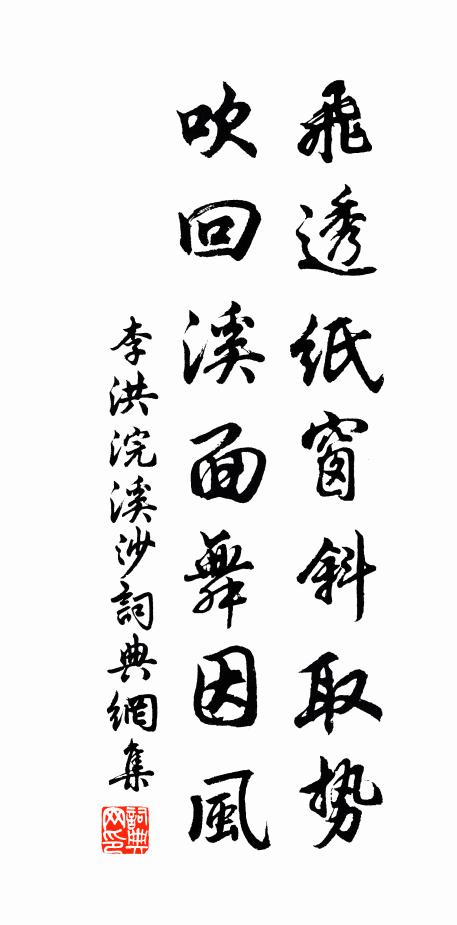 飛透紙窗斜取势
吹回溪面舞因風
李洪浣溪沙詞典網集
詞典网印